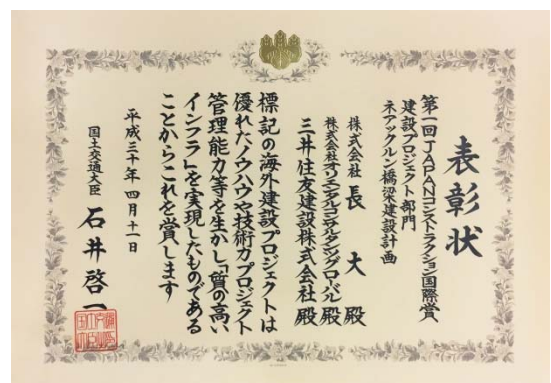 表彰状
第一回JAPANコンストラクション国際賞
建設プロジェクト部門
ネアックルン橋梁建設計画
株式会社 長大 殿
株式会社オリエンタルコンサルタンツグローバル 殿
三井住友建設株式会社 殿
標記の海外建設プロジェクトは
優れたノウハウや技術力プロジェクト
管理能力等を生かし「質の高い
インフラ」を実現したものである
ことからこれを賞します
平成三十年四月十一日
国土交通大臣 石井啓一